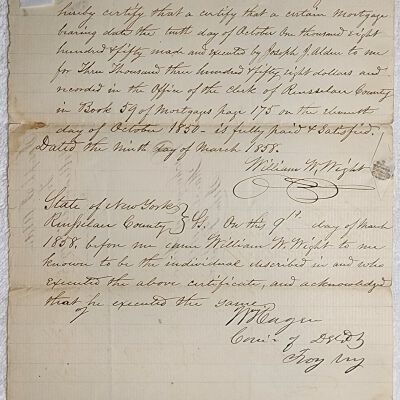 hereby certify that a certify that a certain Mortgage
bearing date the tenth day of October One thousand eight
hundred & fifty made and executed by Joseph J. Alden to me
for Three Thousand three hundred & fifty eight dollars and
recorded in the Office of the Clerk of Rensselaer County
in Book 59 of Mortgages page 175 on the eleventh
day of October 1850 - is fully paid & satisfied.
Dated the Ninth day of March 1858.
William W. Wight
State of New York }
Rensselaer County } SS. On this 9th day of March
1858, before me came William W. Wight to me
known to be the individual described in and who
executed the above certificate, and acknowledged
that he executed the same
of Deeds
Troy NY